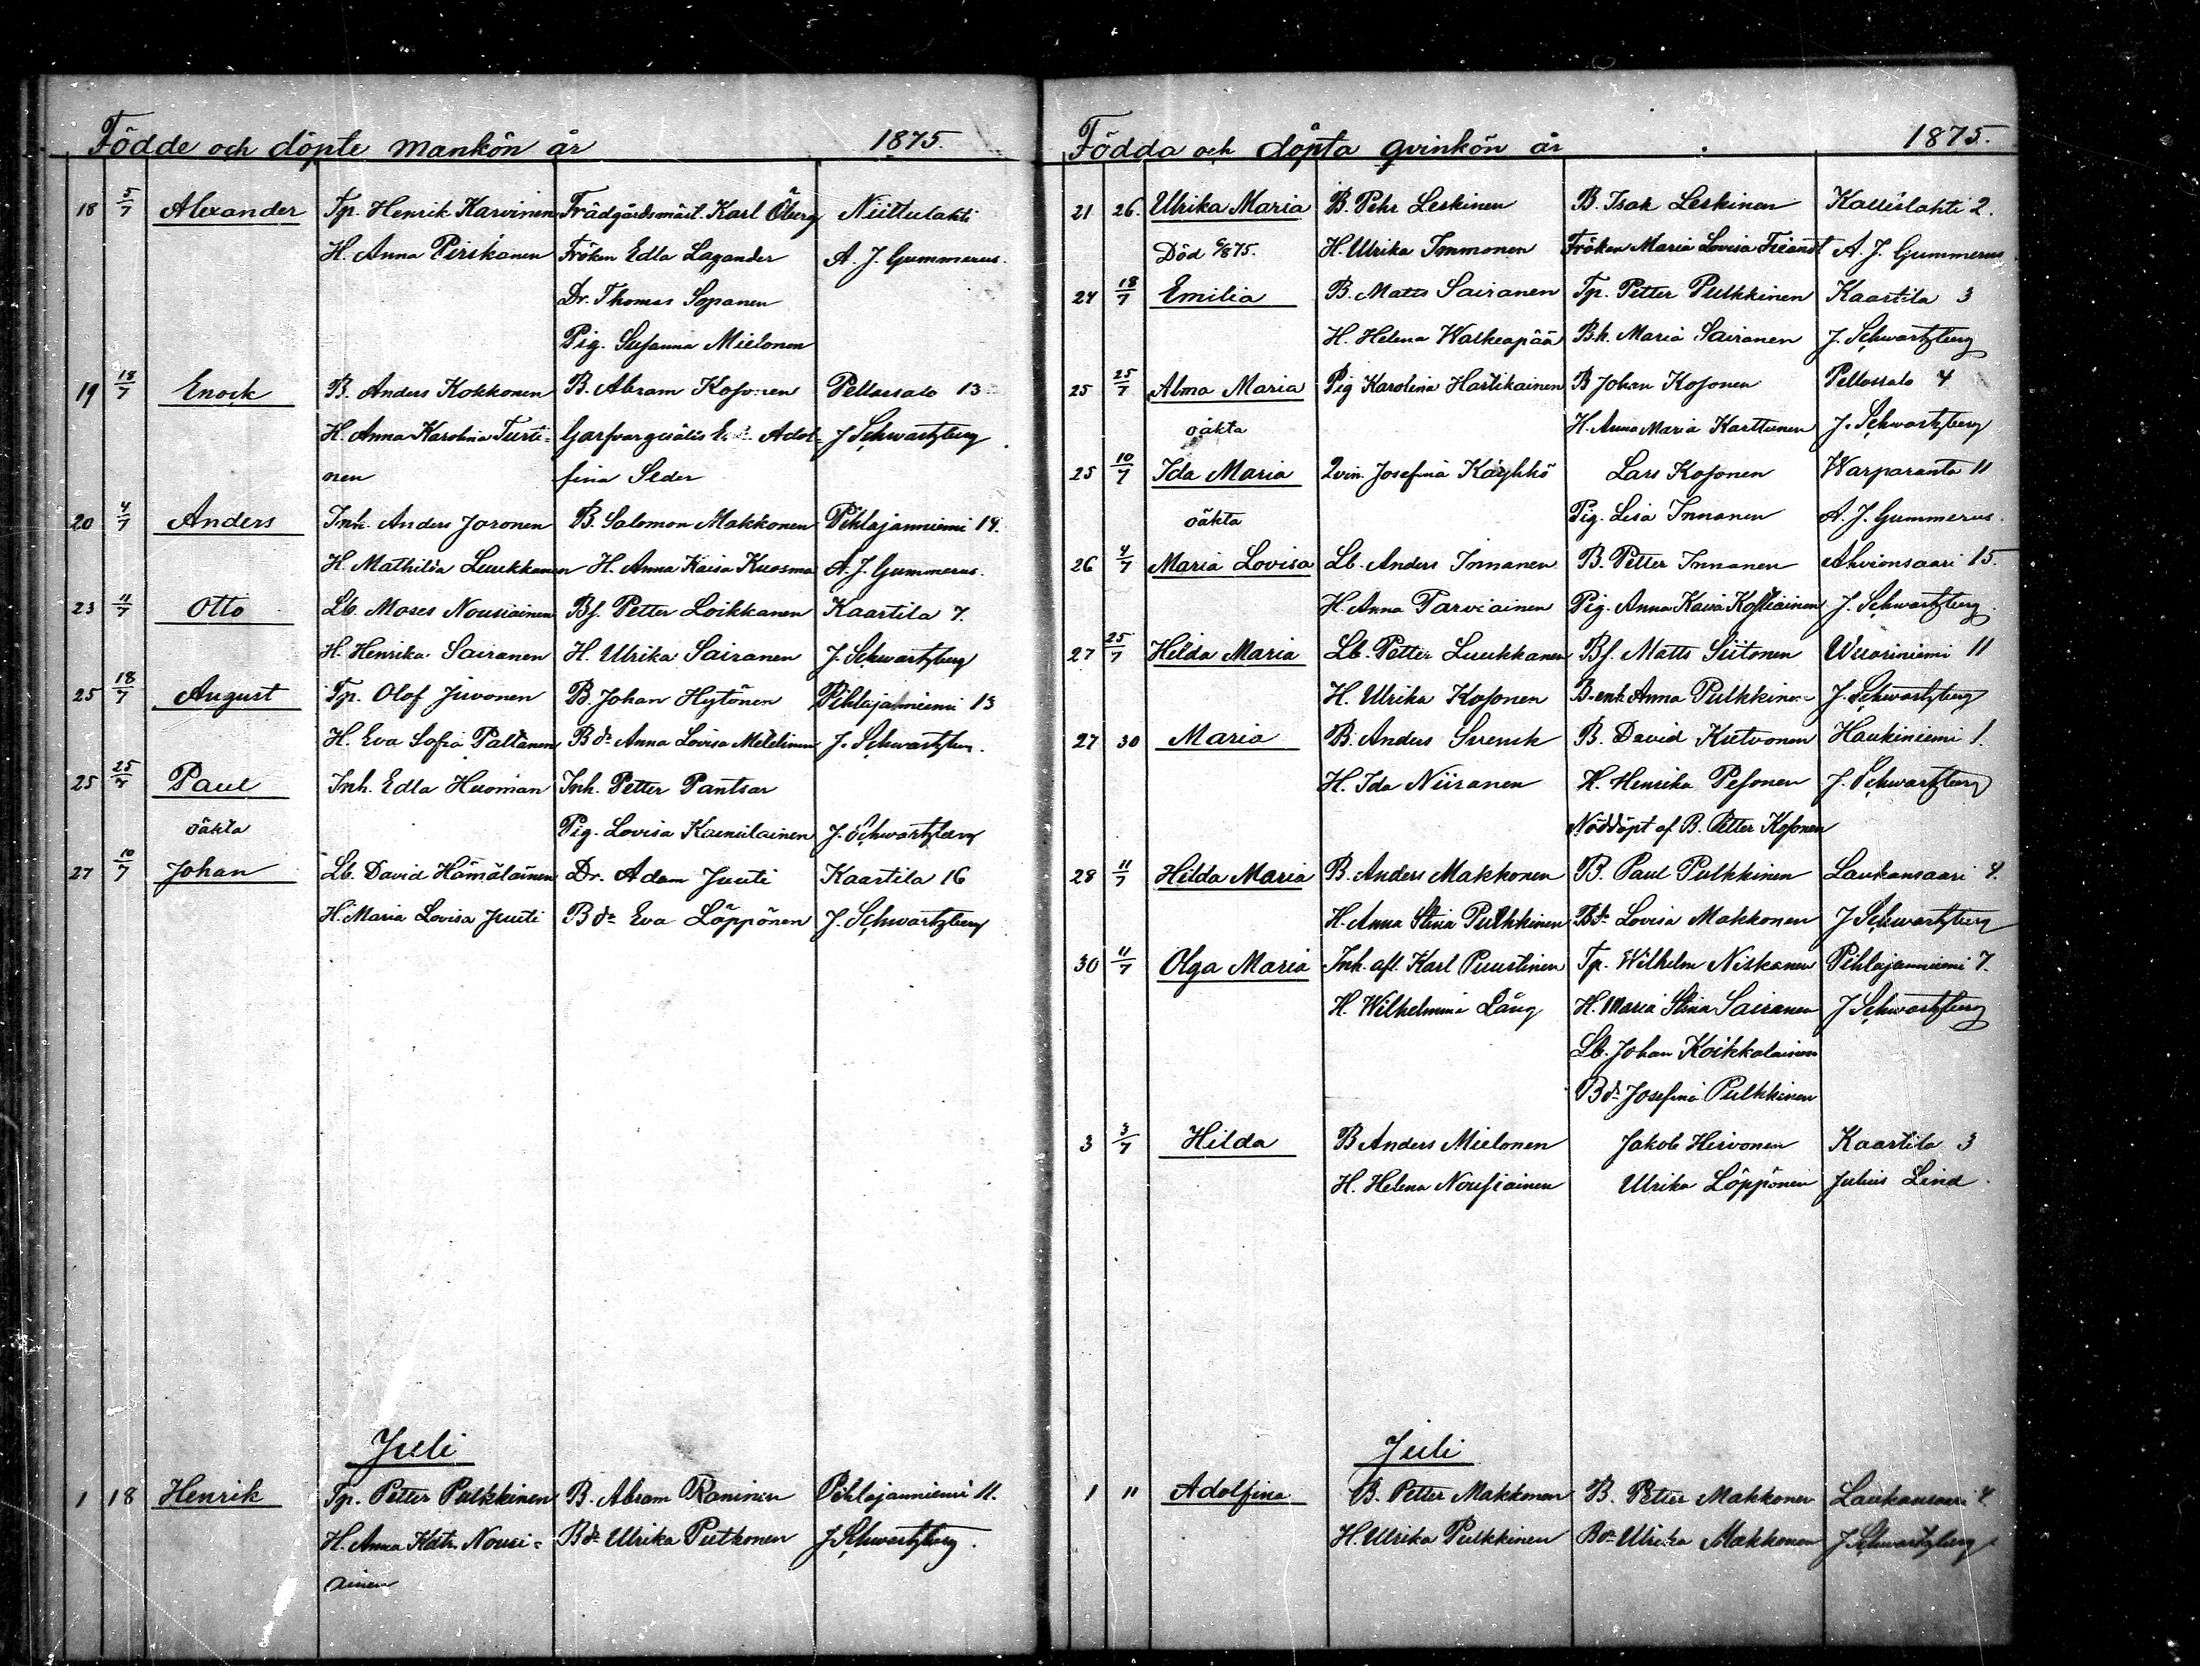 Födde och döpte mankön år 1875.
18 5/7 Alexander Tp. Henrik Karvinen Trädgårdsmäst. Karl Öberg Niittulahti
H. Anna Pirskanen Fröken Edla Lagander A. J. Gummerus.
Dr. Thomas Sopanen
Pig. Susanna Mielonen
19 18/7 Enock B. Anders Kokkonen B. Abram Kosonen Pellossalo 13
H. Anna Karolina Turti- Garfvargesälls Adol- J Schwartzberg
nen fina Seder
20 4/7 Anders Inh. Anders Joronen B. Salomon Makkonen Pihlajanniemi 19.
H. Mathilda Luukkanen H. Anna Kaisa Kuosma A. J. Gummerus.
23 11/7 Otto Lb. Moses Nousiainen Bf. Petter Loikkanen Kaartila 7.
H. Henrika Sairanen H. Ulrika Sairanen J. Schwartzberg
25 18/7 August Tp. Olof Juvonen B. Johan Hytönen Pihlajanniemi 13
H. Eva Sofia Paltanen Bdr Anna Lovisa J. Schwartzberg.
25 25/7 Paul Inh. Edla Huoman Inh. Petter Pantsar
oäkta Pig. Lovisa Kainulainen J. Schwartzberg
27 10/7 Johan Lb. David Hämäläinen Dr. Adam Juuti Kaartila 16
H. Maria Lovisa Juuti Bdr Eva Löppönen J. Schwartzberg
Juli
1 18 Henrik Tp. Petter Pulkkinen B. Abram Raninen Pihlajanniemi 11.
H. Anna Katr. Nousi- Bdr Ulrika Putkonen J Schwartzberg.
ainen
Födda och döpta qvinkön år 1875.
21 26. Ulrika Maria B. Pehr Leskinen B. Isak Leskinen Kallislahti 2.
Död /8 75. H. Ulrika Immonen Fröken Maria Lovisa Fieandt A. J. Gummerus
24 18/7 Emilia B. Matts Sairanen Tp. Petter Pulkkinen Kaartila 3
H. Helena Walkeapää Bh. Maria Sairanen J. Schwartzberg
25 25/7 Alma Maria Pig Karolina Hartikainen B Johan Kosonen Pellossalo 4
oäkta H. Anna Maria Karttunen J. Schwartzberg
25 10/7 Ida Maria Qvin. Josefina Käyhkö Lars Kosonen Warparanta 11
oäkta Pig. Lisa Innanen A. J. Gummerus.
26 4/7 Maria Lovisa Lb. Anders Innanen B. Petter Innanen Ahvionsaari 15.
H. Anna Tarviainen Pig. Anna Kaisa Kostiainen J. Schwartzberg.
27 25/7 Hilda Maria Lb. Petter Luukkanen Bf. Matts Siitonen Wuoriniemi 11
H. Ulrika Kosonen B-enk. Anna Pulkkinen J. Schwartzberg
27 30 Maria B. Anders Svensk B. David Kietvonen Haukiniemi 1.
H. Ida Niiranen H. Henrika Pesonen J. Schwartzberg
Nöddöpt af B. Petter Kosonen
28 11/7 Hilda Maria B. Anders Makkonen B. Paul Pulkkinen Laukansaari 4.
H. Anna Stina Pulkkinen Bdr Lovisa Makkonen J Schwartzberg
30 11/7 Olga Maria Inh. afl. Karl Puustinen Tp. Wilhelm Niskanen Pihlajanniemi 7.
H. Wilhelmina Lång H. Maria Stina Sairanen J Schwartzberg
Lb. Johan Koikkalainen
Bdr Josefina Pulkkinen
3 3/7 Hilda B Anders Mielonen Jakob Hirvonen Kaartila 3
H. Helena Nousiainen Ulrika Löppönen Julius Lind.
Juli
1 11 Adolfina B. Petter Makkonen B. Petter Makkonen Laukansaari 4
H. Ulrika Pulkkinen Bdr Ulrika Makkonen J Schwartzberg